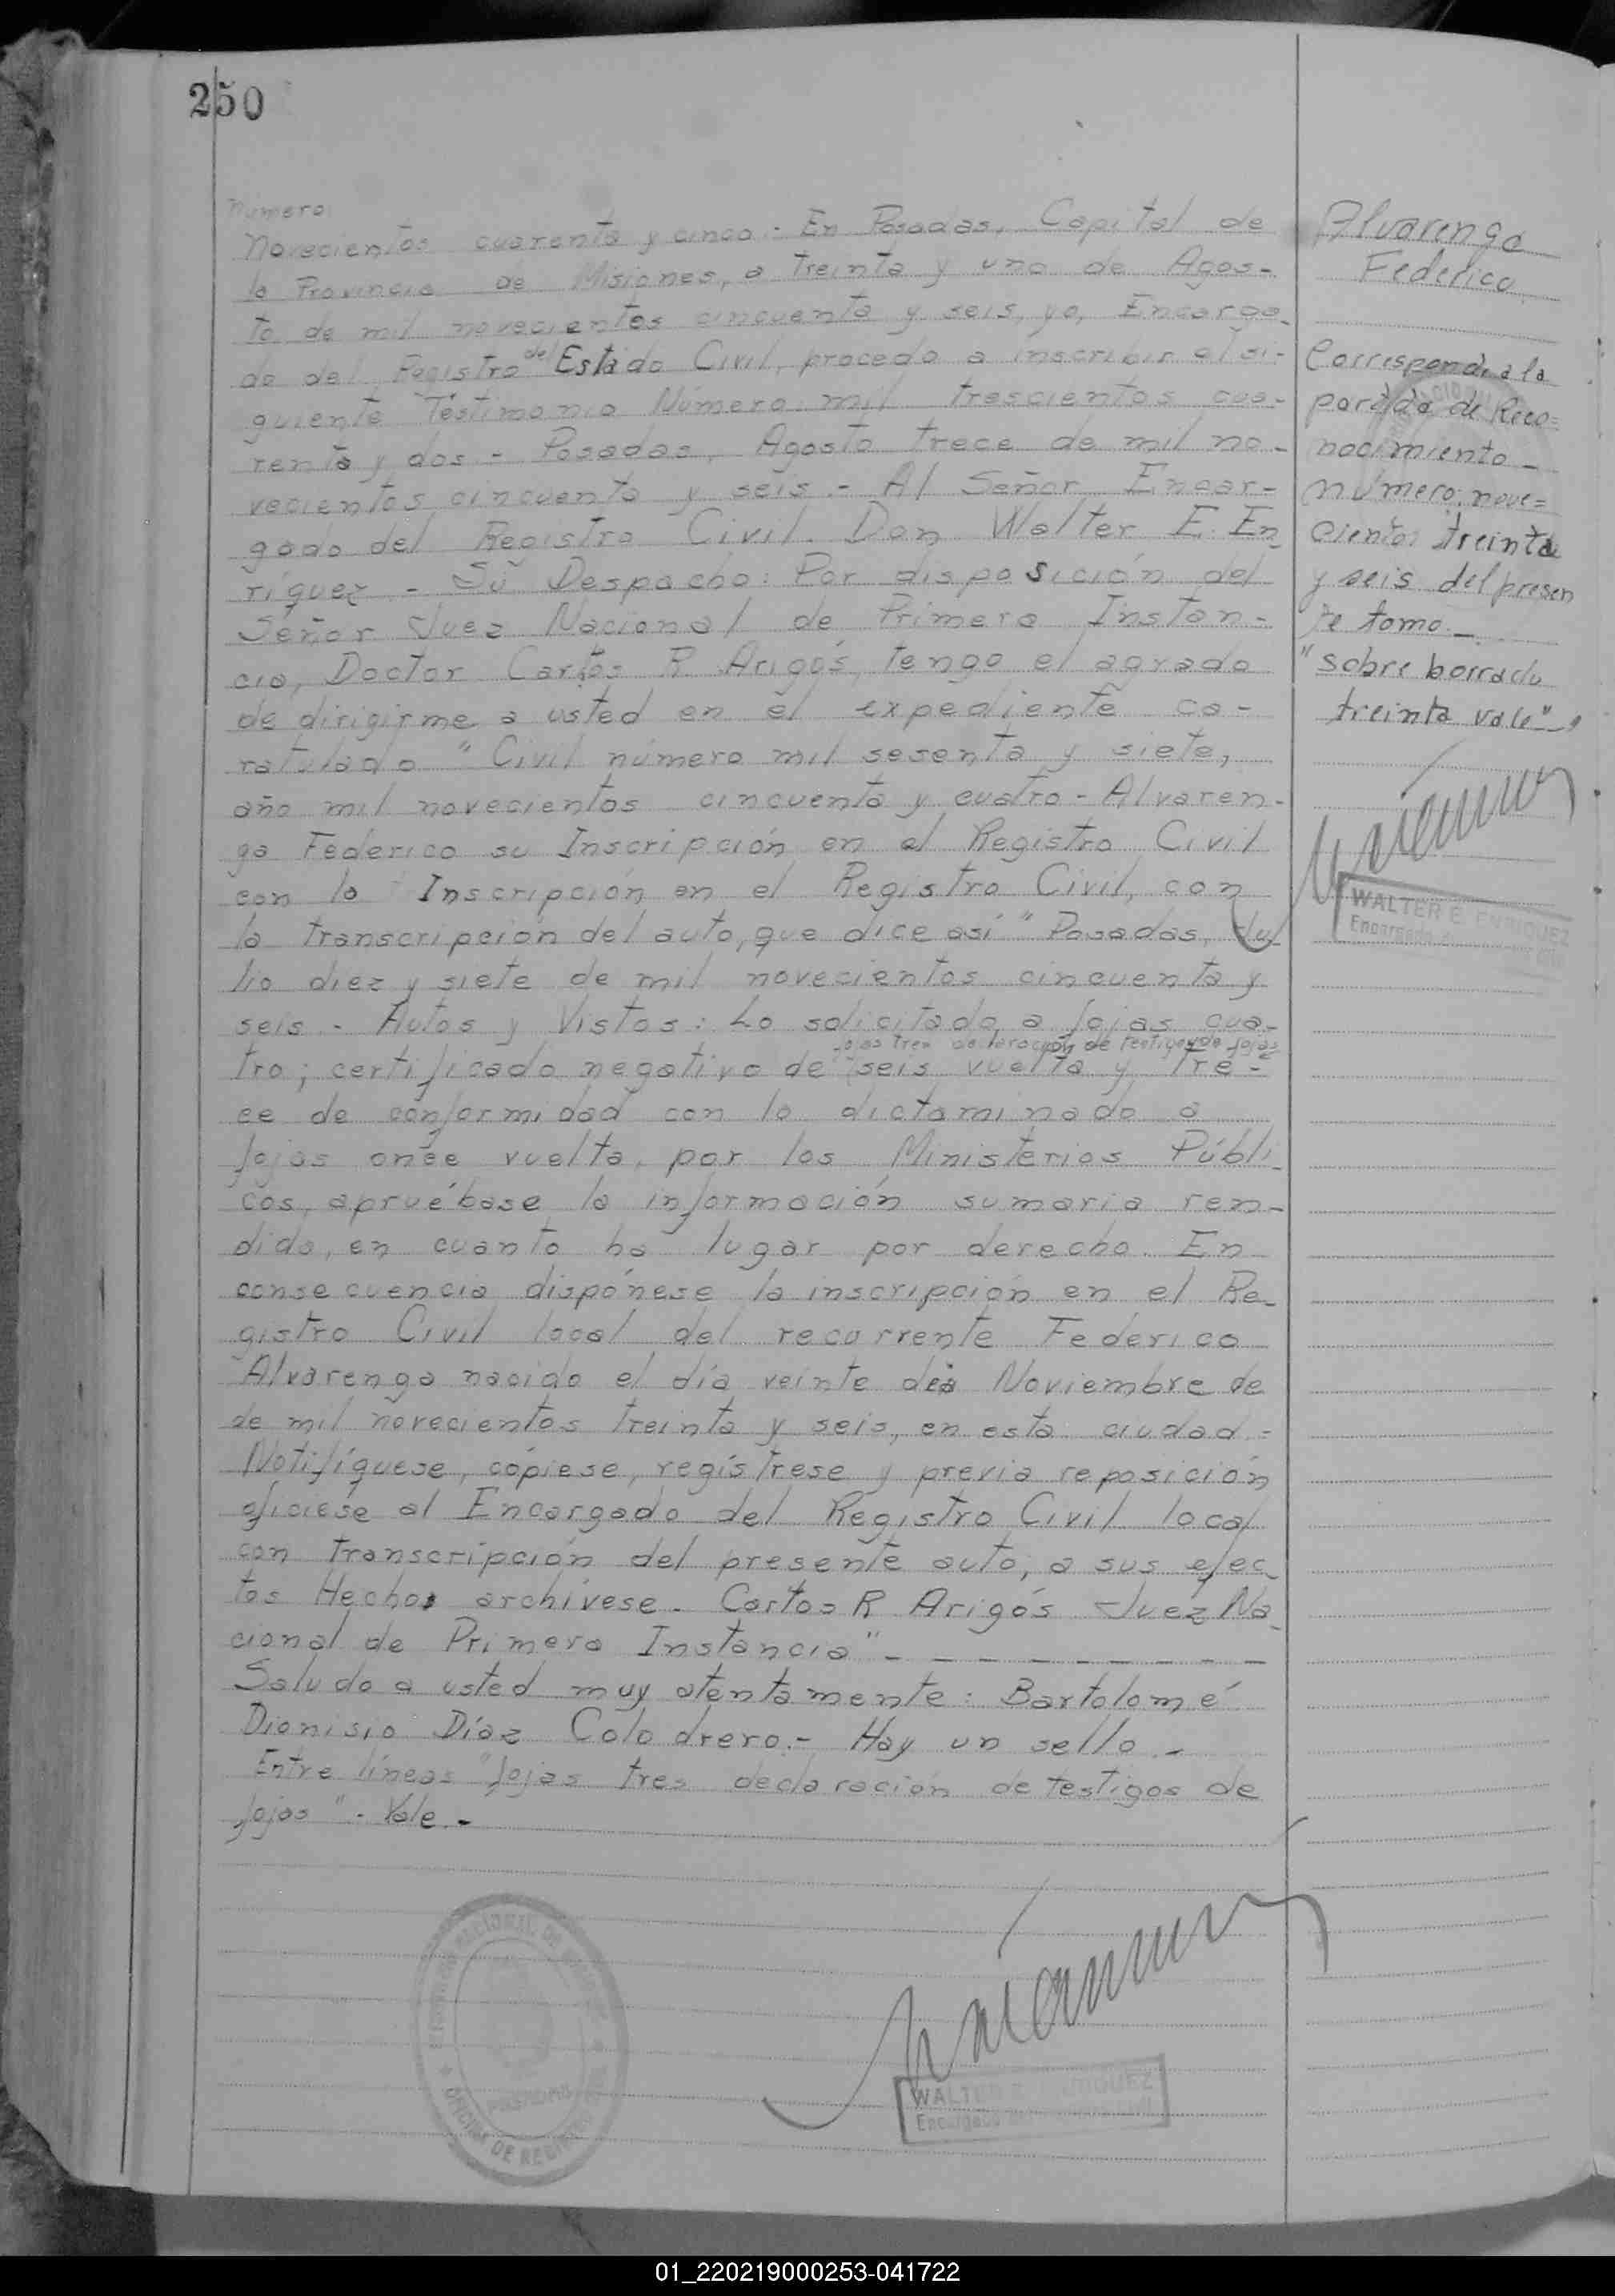 250
Número
novecientos cuarenta y cinco.- En Posadas, Capital de
la Provincia de Misiones, a treinta y uno de Agos-
to de mil novecientos cincuenta y seis, yo, Encarga-
do del Registro del Estado Civil, procedo a inscribir el si-
guiente Testimonio Número mil trescientos cua-
renta y dos - Posadas, Agosto trece de mil no-
vecientos cincuenta y seis.- Al Señor Encar-
gado del Registro Civil. Don Walter E. En
ríquez - Su Despacho: Por disposición del
Señor Juez Nacional de Primera Instan-
cia, Doctor Carlos R. Arigós, tengo el agrado
de dirigirme a usted en el expediente ca-
ratulado "Civil número mil sesenta y siete,
año mil novecientos cincuenta y cuatro - Alvaren-
ga Federico su Inscripción en el Registro Civil
con la Inscripción en el Registro Civil, con
la transcripción del auto, que dice así "Posadas, Ju-
lio diez y siete de mil novecientos cincuenta y
seis - Autos y Vistos: Lo solicitado a fojas cua-
fojas tres declaración de testigos de fojas
tro; certificado negativo de seis vuelta y tre-
ce de conformidad con lo dictaminado a
fojas once vuelta, por los Ministerios Públi-
cos, apruébase la información sumaria ren-
dida, en cuanto ha lugar por derecho. En
consecuencia dispónese la inscripción en el Re-
gistro Civil local del recurrente Federico
Alvarenga nacido el día veinte de Noviembre de
de mil novecientos treinta y seis, en esta ciudad.-
Notifíquese, cópiese, regístrese y previa reposición
ofíciese al Encargado del Registro Civil local
con transcripción del presente auto, a sus efec-
tos Hecho archívese - Carlos R Arigós Juez Na-
cional de Primera Instancia" - - - - - - - -
Saludo a usted muy atentamente: Bartolomé
Dionisio Díaz Colodrero.- Hay un sello.-
Entre líneas "fojas tres declaración de testigos de
fojas".- Vale.-
Alvarenga
Federico
Corresponde a la
partida de Reco=
nocimiento -
número: nove=
cientos treinta
y seis del presen
te tomo.-
"sobre borrado
treinta vale".-
WALTER E. ENRIQUEZ
Encargado
POSADAS
OFICINA DE REGISTRO
WALTER E. ENRIQUEZ
Encargado
01_220219000253-041722